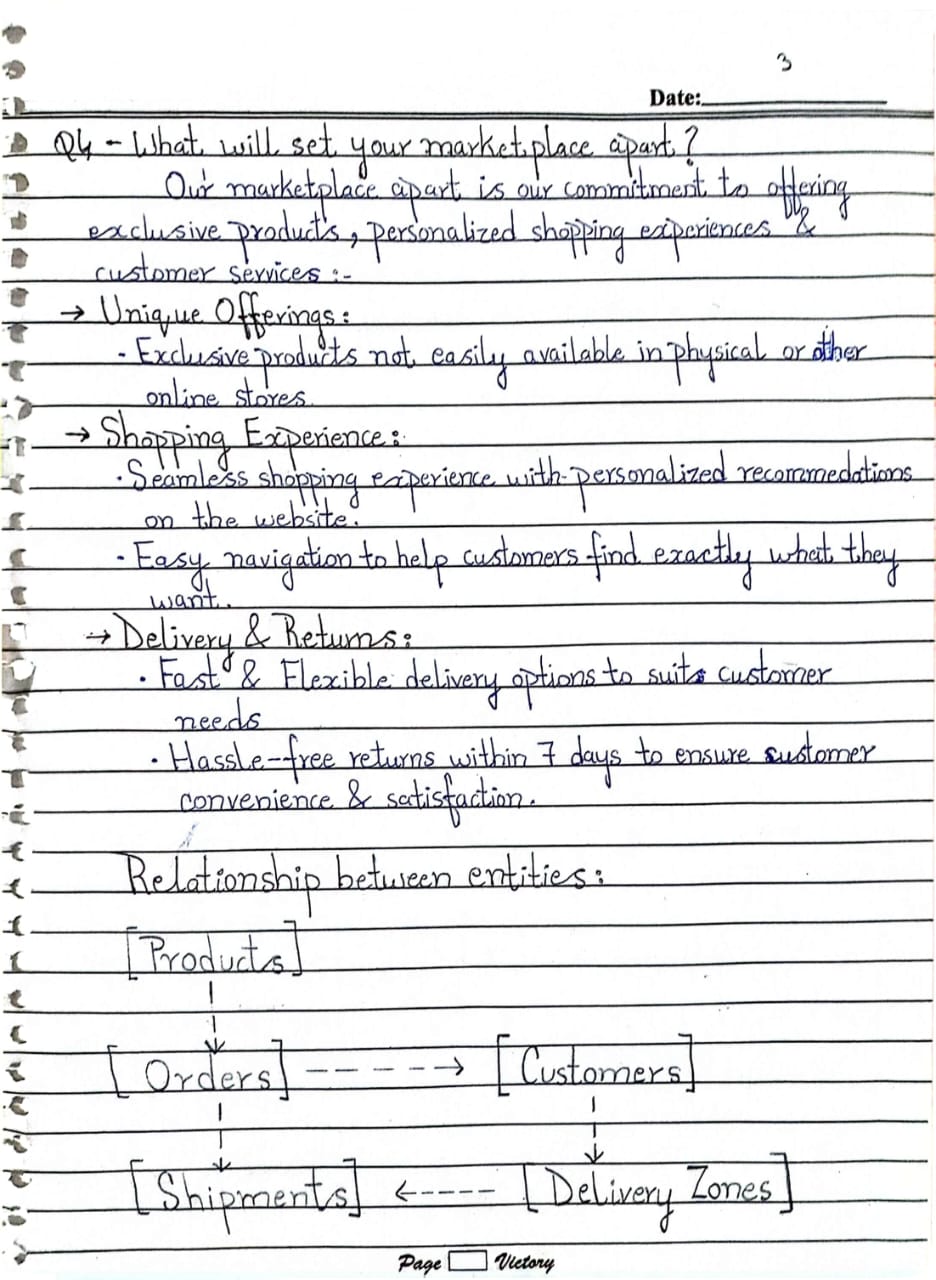 3
Date:
Q4 - What will set your marketplace apart?
Our marketplace apart is our commitment to offering
exclusive products, personalized shopping experiences &
customer services :-
→ Unique Offerings:
- Exclusive products not easily available in physical or other
online stores.
→ Shopping Experience:
· Seamless shopping experience with personalized recommedations
on the website.
· Easy navigation to help customers find exactly what they
want.
→ Delivery & Returns:
· Fast & Flexible delivery options to suits customer
needs
· Hassle-free returns within 7 days to ensure customer
convenience & satisfaction.
Relationship between entities:
[Products]
[Orders] ----→ [Customers]
[Shipments] ←---- [Delivery Zones]
Page Victory